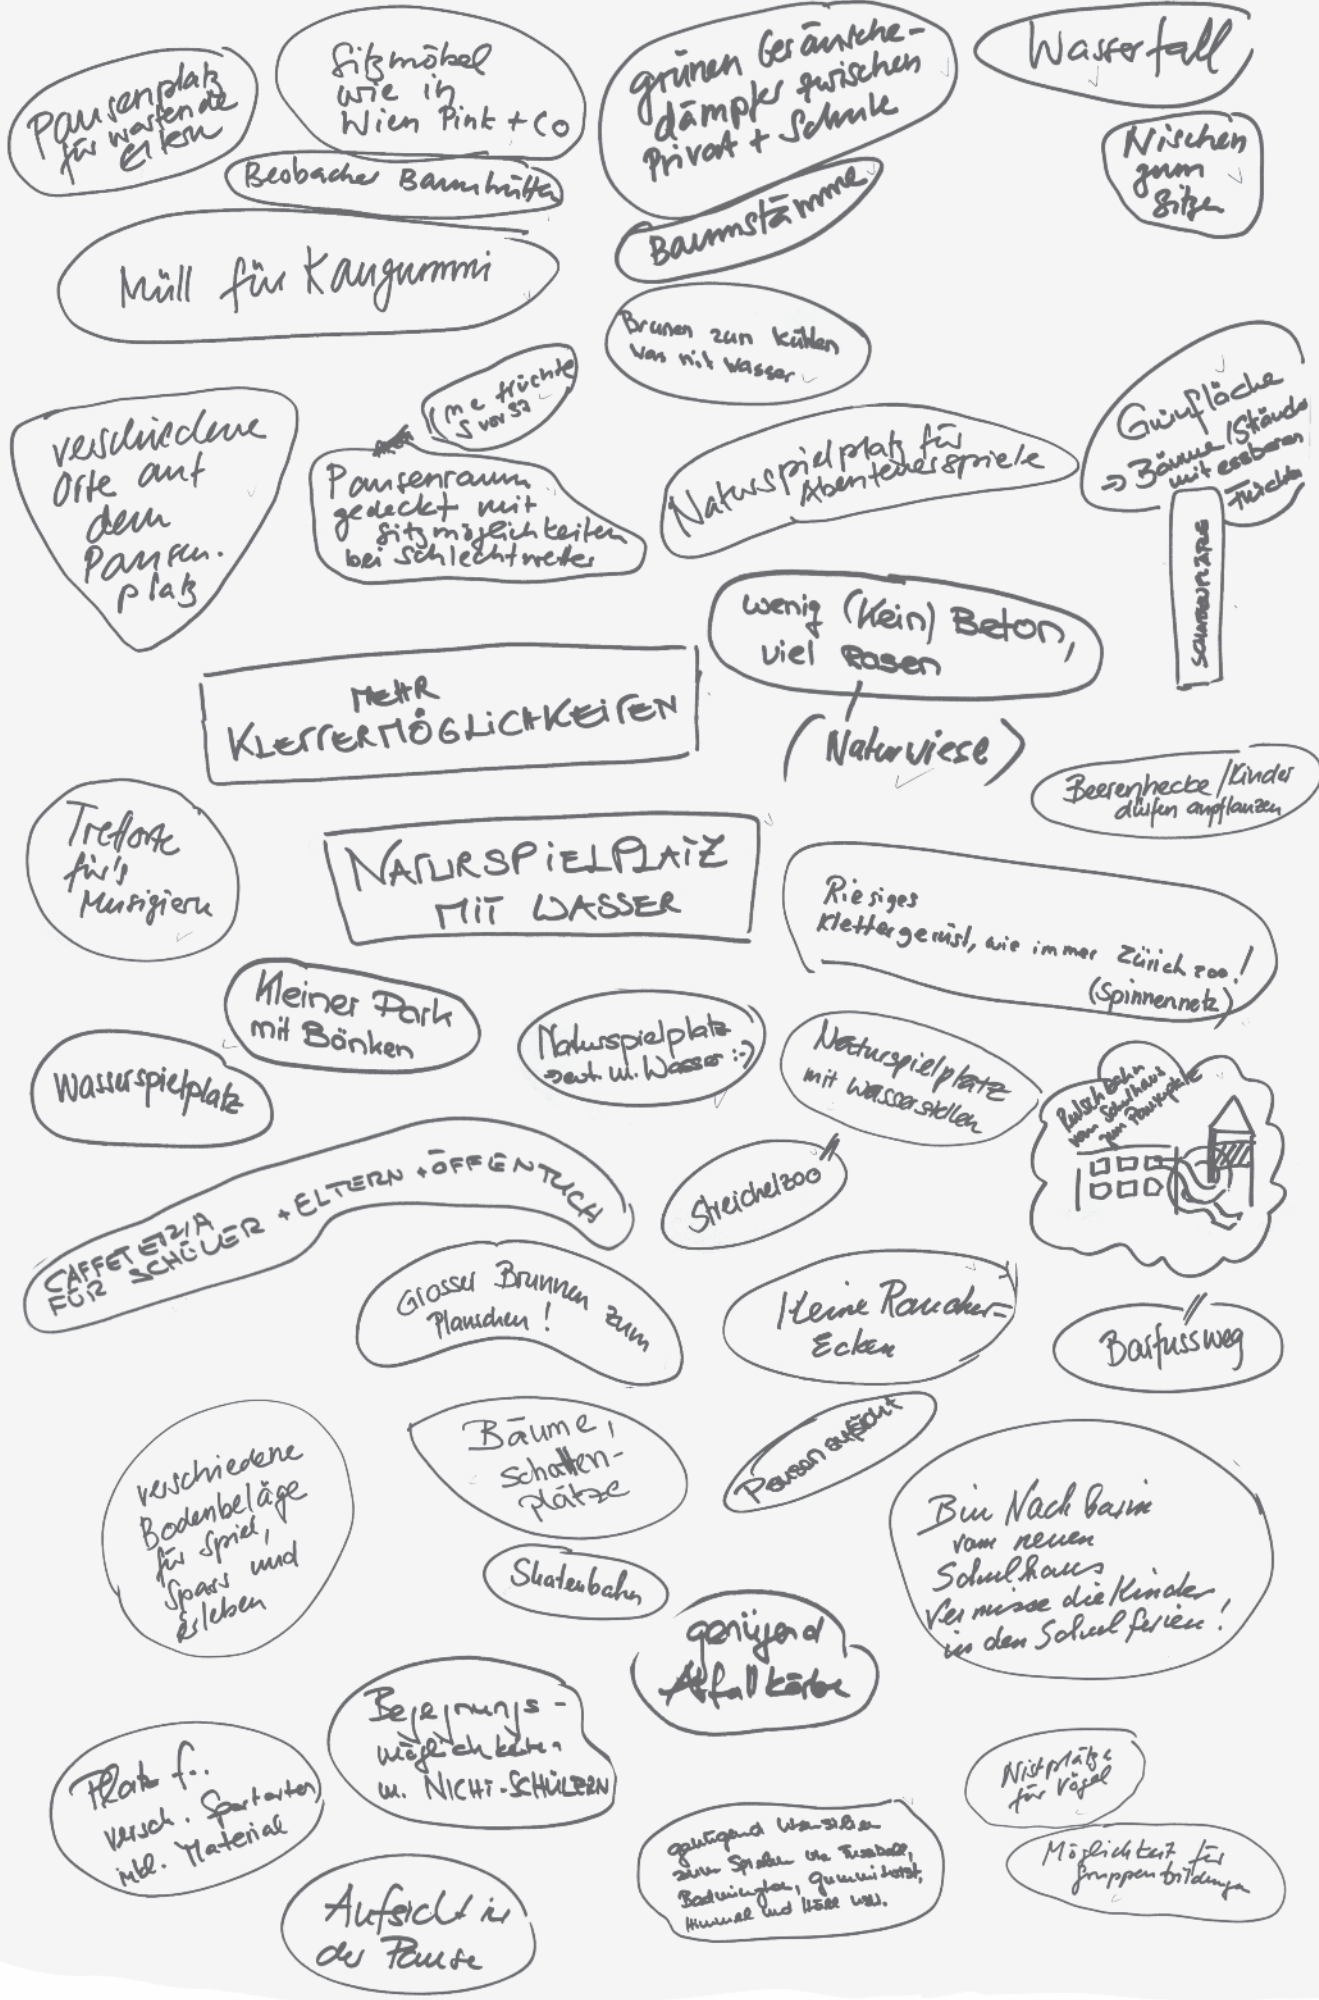 Pausenplatz
für wartende
Eltern
Sitzmöbel
wie in
Wien Pink + Co
grünen Geräusche-
dämpfer zwischen
Privat + Schule
Wasserfall
Nischen
zum
Sitzen
Beobacher Baumhütte
Baumstämme
Müll für Kaugummi
Brunen zum kühlen
was mit wasser
früchte
verschiedene
Orte auf
dem
Pausen-
platz
Pausenraum
gedeckt mit
Sitzmöglichkeiten
bei Schlechtwetter
Naturspielplatz für
Abenteuerspiele
Grünfläche
=> Bäume/Sträucher
mit essbaren
Früchten
wenig (Kein) Beton,
viel Rasen
(Naturwiese)
MEHR
KLETTERMÖGLICHKEITEN
Beerenhecke/Kinder
dürfen anpflanzen
Trefforte
für's
Musizieren
NATURSPIELPLATZ
MIT WASSER
Riesiges
Klettergerüst, wie immer Zürich zoo!
(Spinnennetz)
Kleiner Park
mit Bänken
Naturspielplatz
=> evt. m. Wasser :-)
Naturspielplatz
mit wasser
Wasserspielplatz
Rutschbahn
vom Schulhaus
zum Pausenplatz
CAFFETERIA
FÜR SCHÜLER + ELTERN + ÖFFENTLICH
Streichelzoo
Grosser Brunnen zum
Planschen!
Keine Raucher=
Ecken
Barfussweg
verschiedene
Bodenbeläge
für Spiel,
Spass und
erleben
Bäume,
Schatten-
plätze
Pausenaufsicht
Bin Nachbarin
vom neuen
Schulhaus
Vermisse die Kinder
in den Schulferien!
Skatenbahn
genügend
Abfallkörbe
Begegnungs-
möglichkeiten
m. NICHT-SCHÜLERN
Platz f.
versch. Sportarten
inkl. Material
Nistplätze
für Vögel
genügend
zum Spielen wie Fussball,
Badmington, Gummitwist,
Himmel und Hölle usw.
Möglichkeit für
Gruppenbildungen
Aufsicht in
der Pause